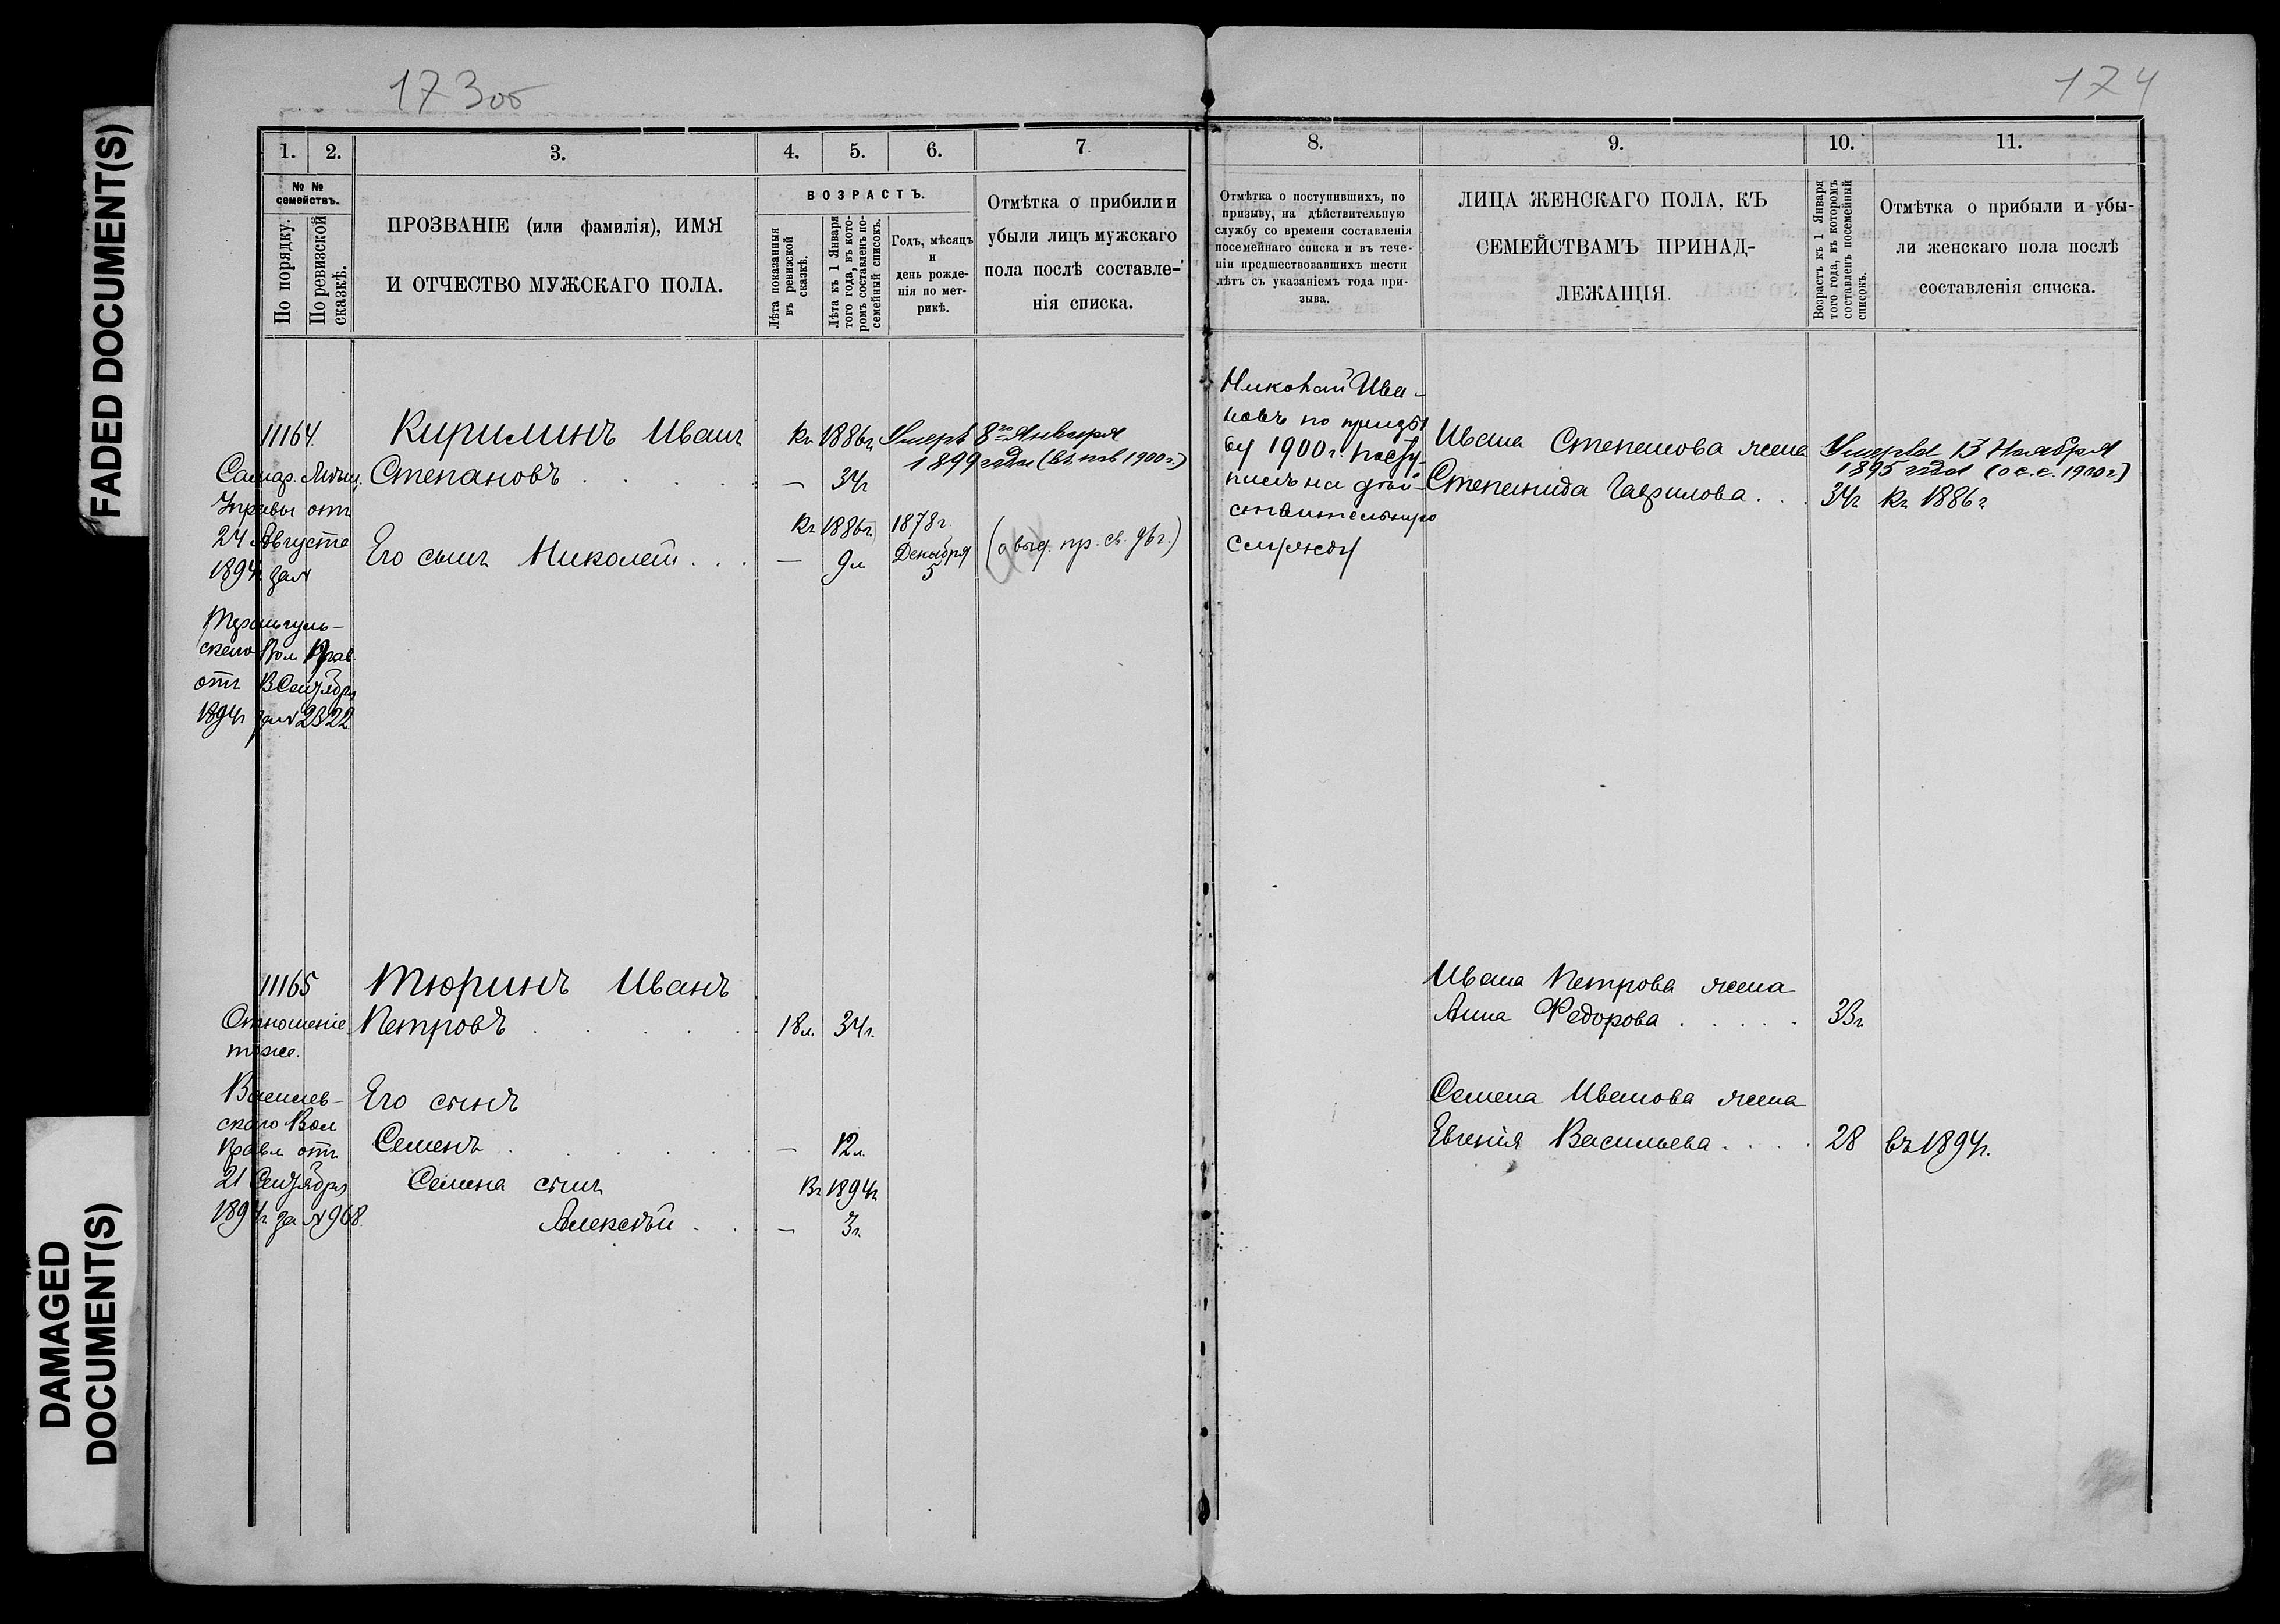 FADED DOCUMENT(S)
DAMAGED
DOCUMENT(S)
173об
1.
2.
3.
4.
5.
6.
7
№ №
семействъ.
По порядку.
По ревизской
сказкѣ.
ПРОЗВАНІЕ (или фамилія), ИМЯ
И ОТЧЕСТВО МУЖСКАГО ПОЛА.
ВОЗРАСТЪ.
Лѣта показанныя
въ ревизской
сказкѣ.
Лѣта къ 1 Января
того года, въ кото-
ромъ составленъ по-
семейный списокъ.
Годъ, мѣсяцъ
и
день рожде-
нія по мет-
рикѣ.
Отмѣтка о прибили и
убыли лицъ мужскаго
пола послѣ составле-
нія списка.
11164.
Самар. Мѣщ.
Управы отъ
24 Августа
1894г за №
скаго Вол Прав.
отъ 13 Сентября
1894г за № 2322
Кирилинъ Иванъ
Степановъ
Къ 1886г
— 34г
Умеръ 8го Января
1899 года
Его сынъ Николай
Къ 1886г
— 9л
1878г.
Декабря
5
11165
Отношеніе
тоже.
Василев-
скаго Вол
Правл отъ
21 Сентября
1894г за № 968.
Тюринъ Иванъ
Петровъ
18л. 34г.
Его сынъ
Семенъ
— 12л.
Семена сынъ
Въ 1894г
Алексѣй
— 3г.
174
8.
9.
10.
11.
Отмѣтка о поступившихъ, по
призыву, на дѣйствительную
службу со времени составленія
посемейнаго списка и въ тече-
ніи предшествовавшихъ шести
лѣтъ съ указаніемъ года при-
зыва.
ЛИЦА ЖЕНСКАГО ПОЛА, КЪ
СЕМЕЙСТВАМЪ ПРИНАД-
ЛЕЖАЩІЯ.
Возрастъ къ 1 Января
того года, въ которомъ
составленъ посемейный
списокъ.
Отмѣтка о прибыли и убы-
ли женскаго пола послѣ
составленія списка.
Николай Ива-
новъ по призы
ву 1900г. посту-
пилъ на дѣй-
ствительную
службу
Ивана Степанова жена
Степанида Гаврилова
34г
Умерла 13 Ноября
1895 года (о с.с. 1900г)
Къ 1886г
Ивана Петрова жена
Анна Федорова
33г
Семена Иванова жена
Евгенія Васильева
28
въ 1894г.